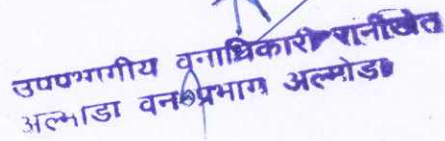 उपप्रभागीय वनाधिकारी रानीखेत
अल्मोडा वन प्रभाग अल्मोडा